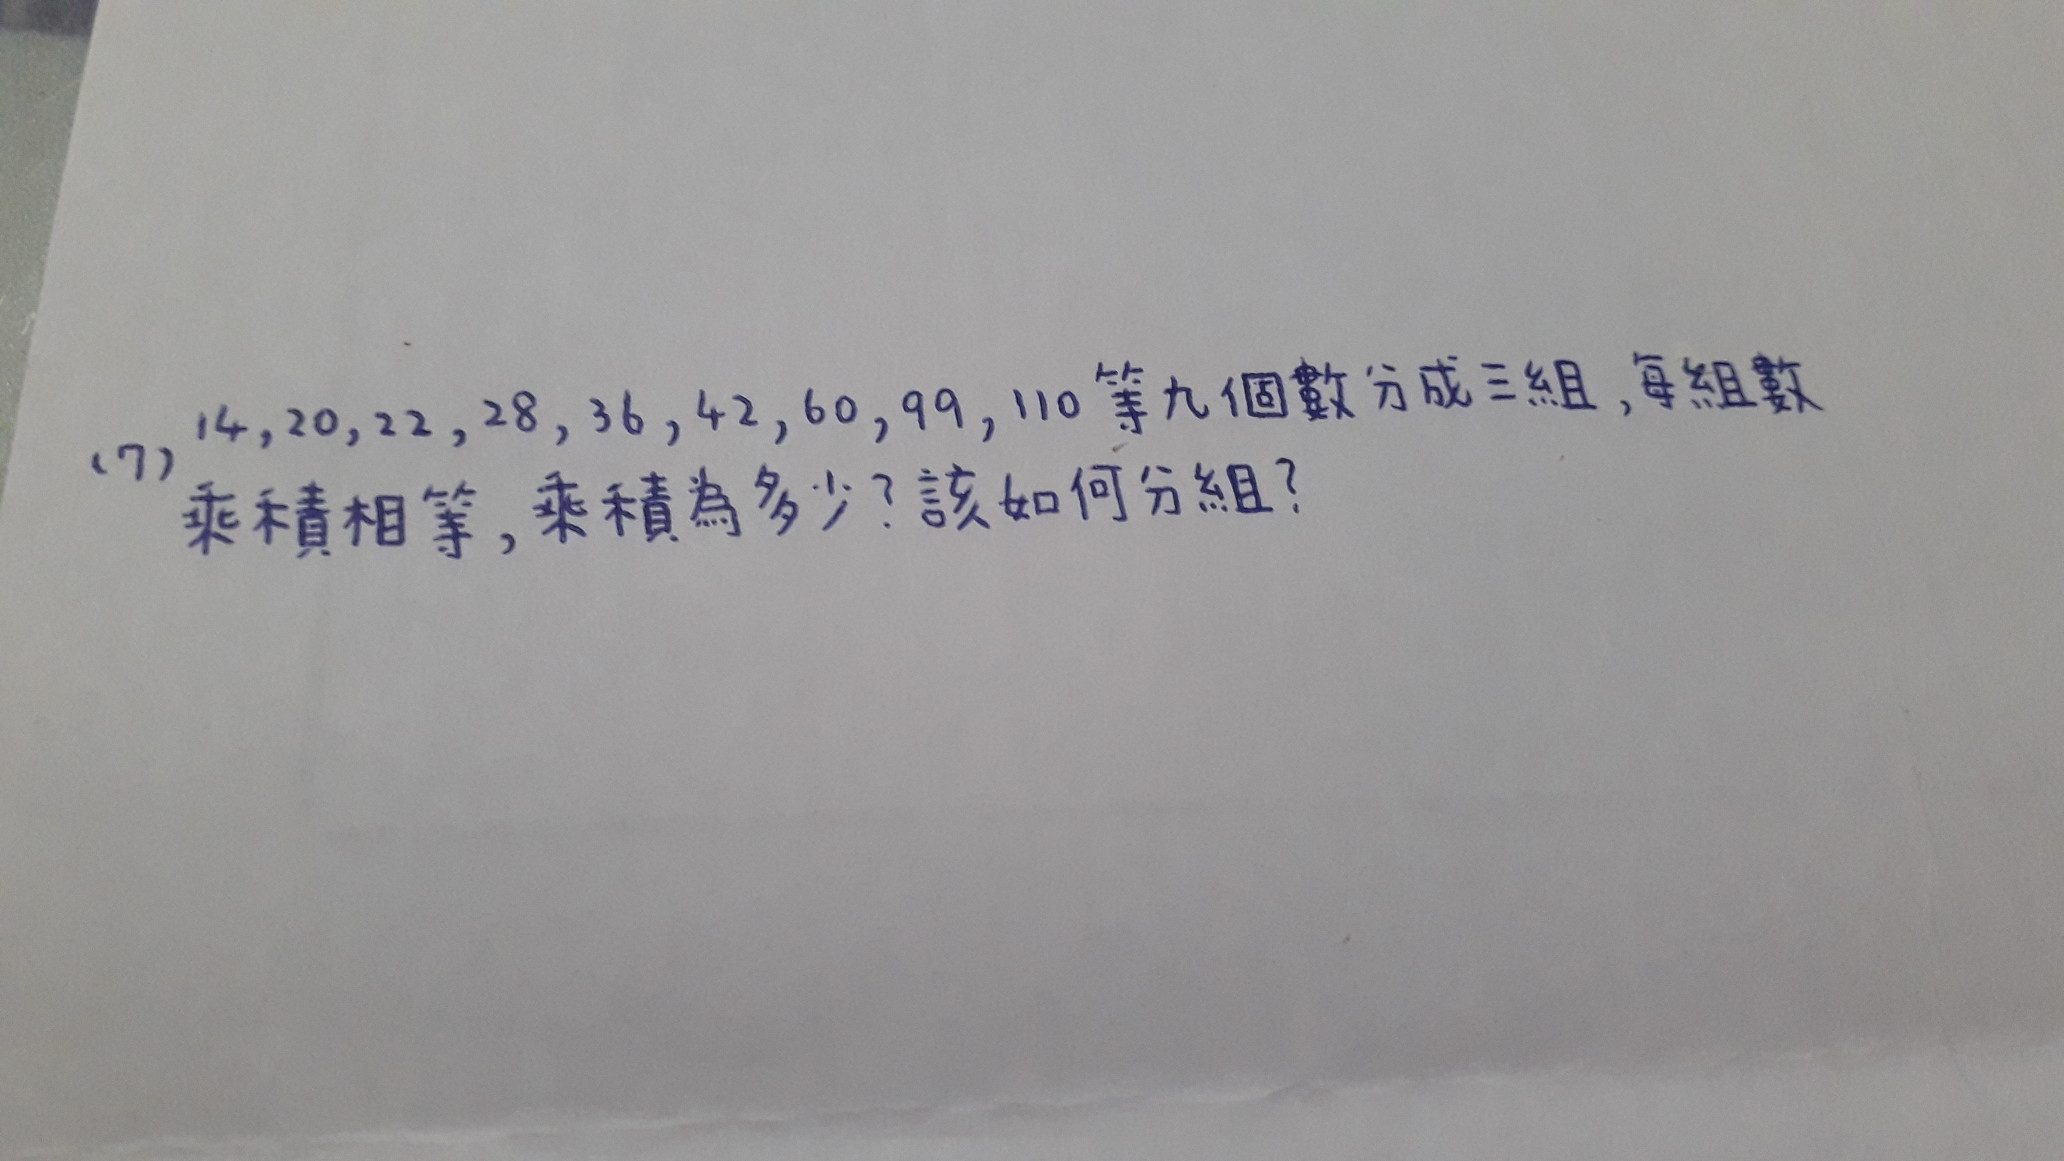 (7) 14,20,22,28,36,42,60,99,110等九個數分成三組,每組數
乘積相等,乘積為多少?該如何分組?